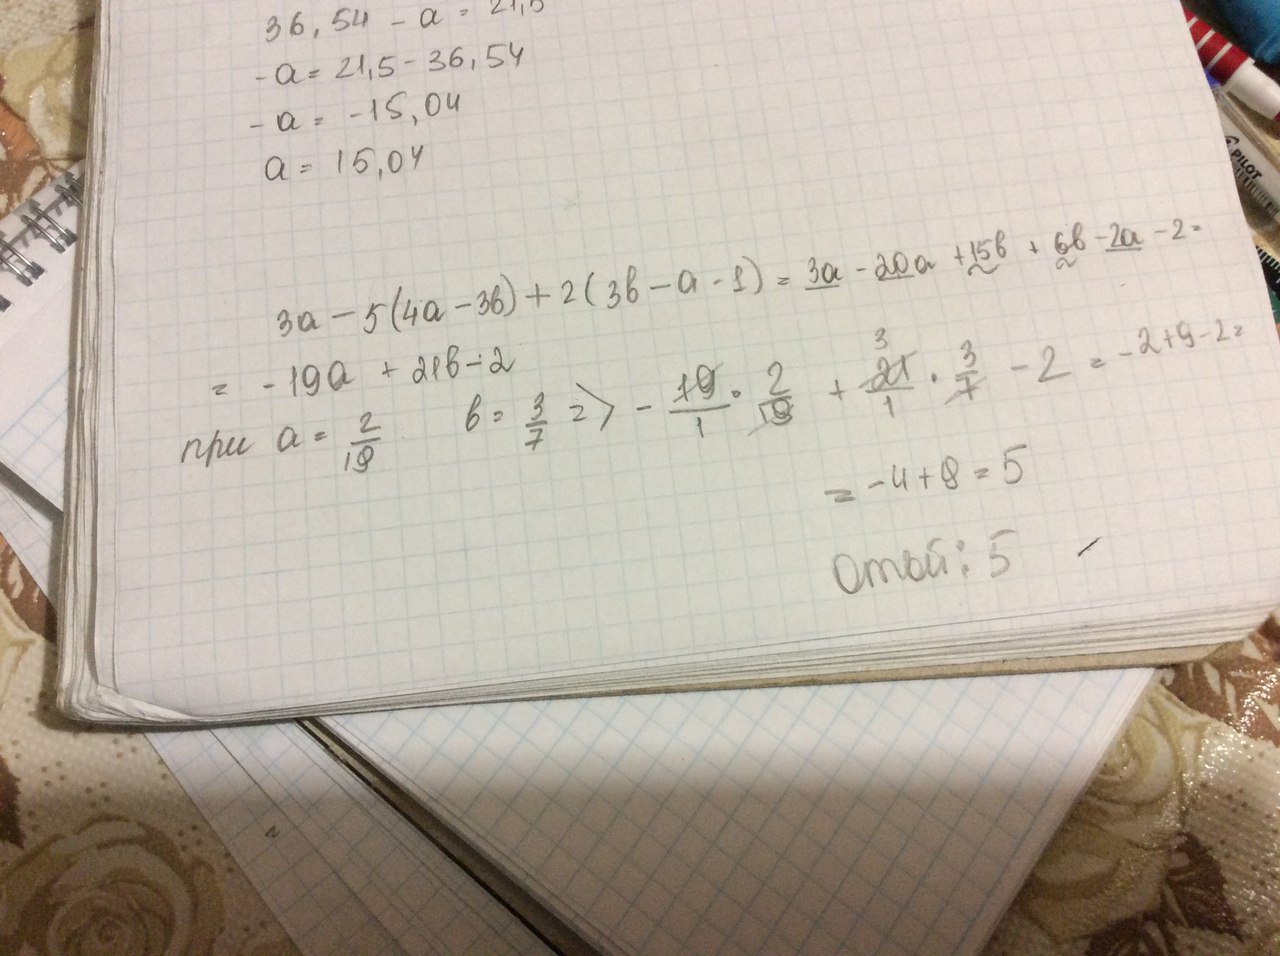 36,54 - a = 21,5
-a = 21,5 - 36,54
-a = -15,04
a = 15,04
3a - 5(4a - 3b) + 2(3b - a - 1) = 3a - 20a + 15b + 6b - 2a - 2 =
= -19a + 21b - 2
при a = 2/19 b = 3/7 => - 19/1 · 2/19 + 21/1 · 3/7 - 2 = -2+9-2=
3
= -4 + 9 = 5
Ответ: 5
PILOT